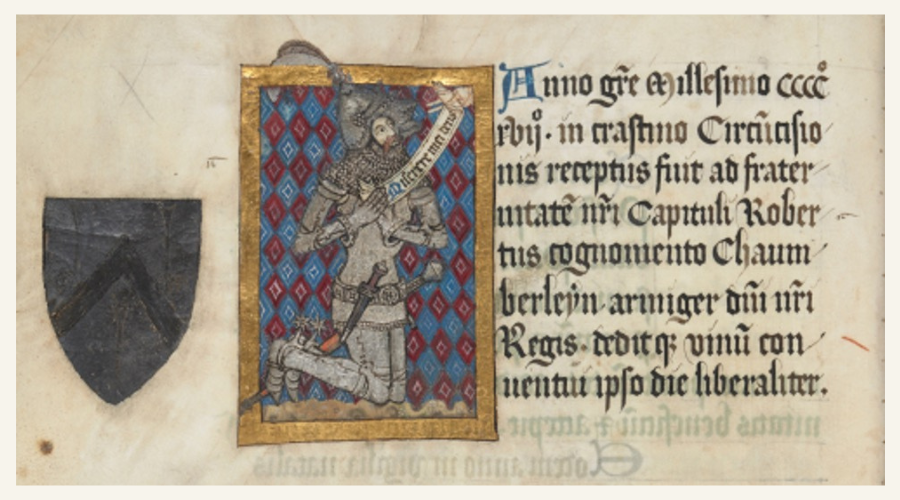 Miserere mei deus
Anno gr̄e Millesimo cccco
xvijo. in crastino Circūcisio
nis receptus fuit ad frater
nitatē nr̄i Capituli Rober
tus cognomento Chaum
berleyn armiger dn̄i nr̄i
Regis. dedit qꝫ vinū con
uentui ipso die liberaliter.